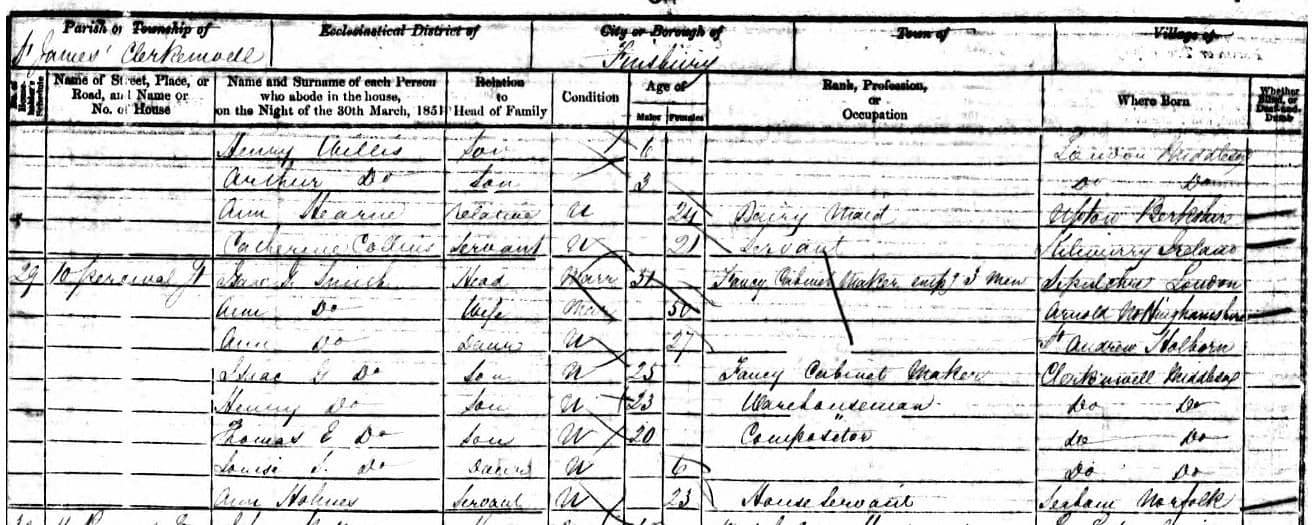 Parish or Township of Ecclesiastical District of City or Borough of Town of Village of
St James' Clerkenwell Finsbury
Name of Street, Place, or Road, and Name or No. of House Name and Surname of each Person who abode in the house, on the Night of the 30th March, 1851 Relation to Head of Family Condition Age of Males Females Rank, Profession, or Occupation Where Born Whether Blind, or Deaf-and-Dumb
Henry Willis Son 6 London Middlesex
Arthur Do Son 3 Do Do
Ann Hearne relative U 24 Dairy Maid Upton Berkshire
Catherine Collins Servant U 21 Servant Ireland
29 10 Percival St Isaac G Smith Head Marr 51 Fancy Cabinet Maker emp 3 Men London
Ann Do Wife Mar 50 Arnold Nottinghamshire
Ann Do Daur U 27 St Andrew Holborn
Isaac G Do Son U 25 Fancy Cabinet Maker Clerkenwell Middlesex
Henry Do Son U 23 Warehouseman Do Do
Thomas E Do Son U 20 Compositor Do Do
Louisa S. Do Daur U 6 Do Do
Ann Holmes Servant U 23 House Servant Norfolk